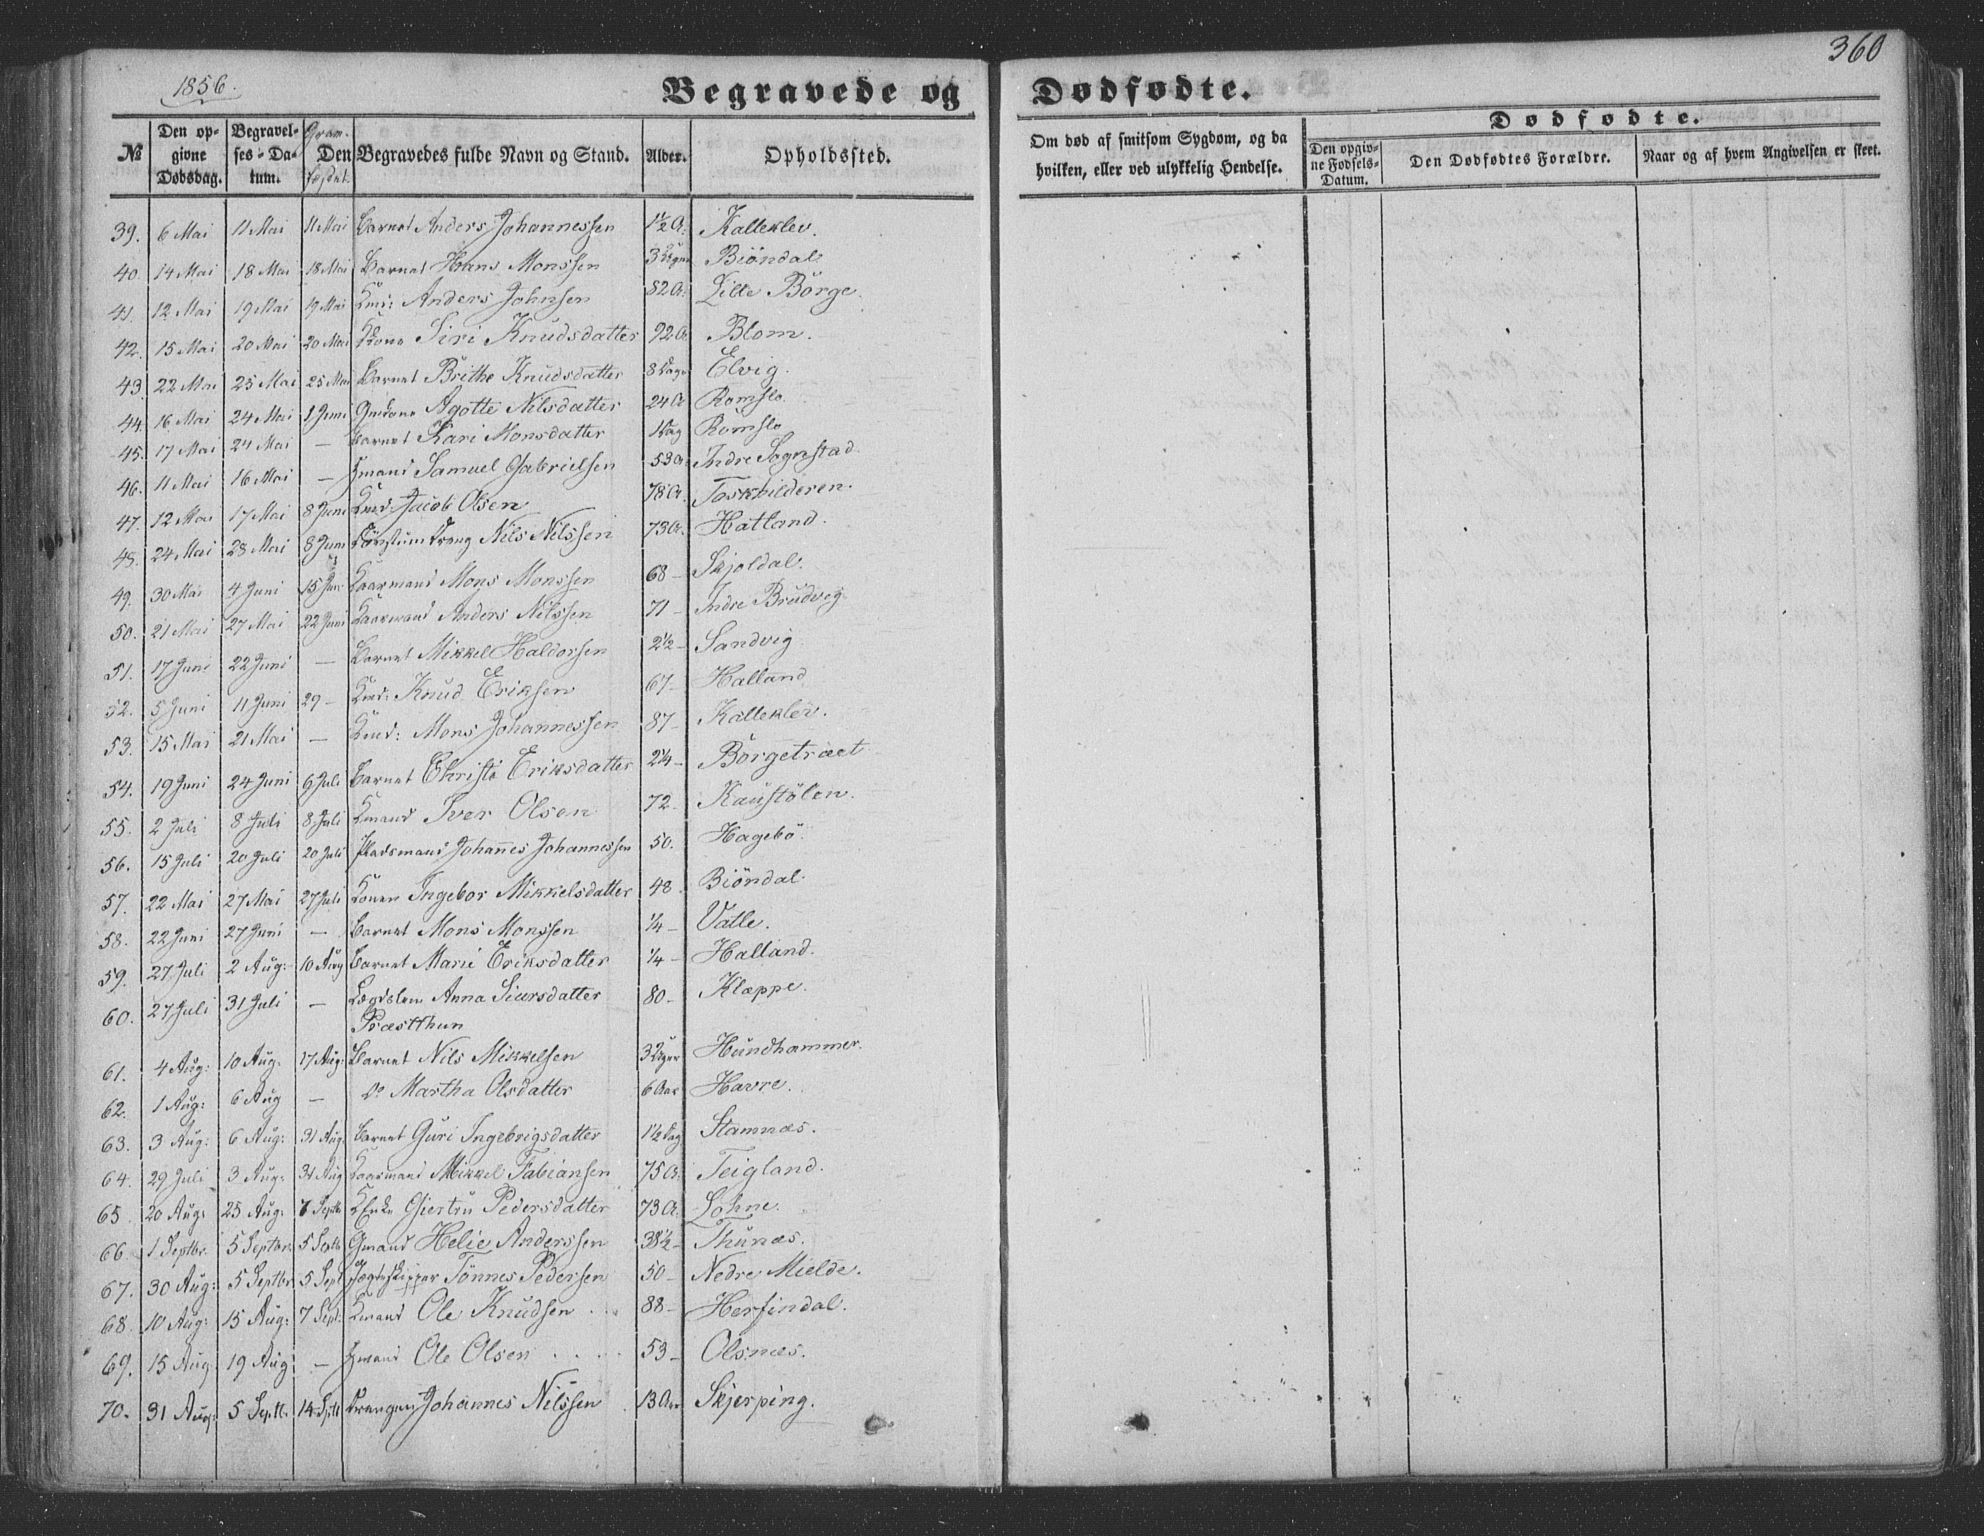 1856.
360
Begravede og Dødfødte.
№
Den opgivne Dødsdag.
Begravelses-Datum.
Den Begravedes fulde Navn og Stand.
Alder.
Opholdssted.
Om død af smitsom Sygdom, og da hvilken, eller ved ulykkelig Hendelse.
Dødfødte.
Den opgivne Fødsels-Datum.
Den Dødfødtes Forældre.
Naar og af hvem Angivelsen er skeet.
39. 6 Mai 11 Mai 11 Mai Barnet Anders Johannessen 1½ A. Kalleklev.
40. 14 Mai 18 Mai 18 Mai Barnet Hans Monssen 3 Uger Biöndal
41. 12 Mai 19 Mai 19 Mai Kmd: Anders Johnsen 82 A. Lille Börge.
42. 15 Mai 20 Mai 20 Mai Kone Siri Knudsdatter 92 A Blom.
43. 22 Mai 25 Mai 25 Mai Barnet Brithe Knudsdatter 8 Dage Elvig.
44. 16 Mai 24 Mai 1 Juni Agotte Nilsdatter 24 A Romslo.
45. 17 Mai 24 Mai — Barnet Kari Monsdatter 1 Dag Romslo
46. 11 Mai 16 Mai — Samuel Gabrielsen 53 A. Indre Sognstad
47. 12 Mai 17 Mai 8 Juni Kmd: Jacob Olsen 78 A. Toskhilderen.
48. 24 Mai 28 Mai 8 Juni Nils Nilssen 73 A. Hatland.
49. 30 Mai 4 Juni 15 Juni Kaarmand Mons Monssen 68 — Skjoldal.
50. 21 Mai 27 Mai 22 Juni Kaarmand Anders Nilssen 71 — Indre Brudvig
51. 17 Juni 22 Juni — Barnet Mikkel Haldorsen 2½ — Sandvig
52. 5 Juni 11 Juni 29 — Kmd: Knud Eriksen 67 — Halland
53. 15 Mai 21 Mai — Kmd: Mons Johannessen 87 — Kalleklev.
54. 19 Juni 24 Juni 6 Juli Barnet Christi Eriksdatter 2¼ — Börgetræet
55. 2 Juli 8 Juli 8 Juli Kmand Iver Olsen 72 — Kaustölen.
56. 15 Juli 20 Juli 20 Juli Pladsmand Johannes Johannessen 50. Hagebö.
57. 22 Mai 27 Mai 27 Juli Konen Ingebor Mikkelsdatter 48 Biöndal.
58. 22 Juni 27 Juni — Barnet Mons Monssen ¼ — Vatle.
59. 27 Juli 2 Aug: 10 Aug Barnet Marie Eriksdatter ¼ — Halland.
60. 27 Juli 31 Juli — Lægdslem Anna Siursdatter 80 — Klæppe.
Præstthun
61. 4 Aug: 10 Aug: 17 Aug: Barnet Nils Mikkelsen 3 Uger Hundhammer.
62. 1 Aug: 6 Aug — Do Martha Olsdatter 6 Aar Havre.
63. 3 Aug: 6 Aug: 31 Aug Barnet Guri Ingebrigsdatter 1½ Dag Stamnæs.
64. 29 Juli 3 Aug: 31 Aug Kaarmand Mikkel Fabiansen 75 A. Teigland.
65. 20 Aug: 25 Aug: 7 Septb KEnke Giertru Pedersdatter 73 A. Lohne.
66. 1 Septbr. 5 Septbr. 5 Septb Gmand Helie Anderssen 38½ — Thunæs.
67. 30 Aug: 5 Septbr. 5 Sept Jægtskipper Tönnes Pedersen 50 — Nedre Mielde.
68. 10 Aug: 15 Aug: 7 Sept: Kmand Ole Knudsen 88 — Herfindal.
69. 15 Aug 19 Aug — Ole Olsen 53 — Olsnæs.
70. 31 Aug: 5 Septb. 14 Septb Drengen Johannes Nilssen 13 Aar Skjerping.